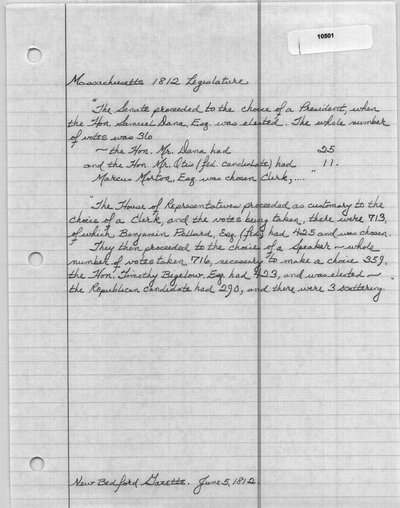 10501
Massachusetts 1812 Legislature
"The Senate proceeded to the choice of a President, when
the Hon. Samuel Dana, Esq was elected. The whole number
of votes was 36
~ the Hon. Mr. Dana had 25
and the Hon Mr. Otis (fed. candidate) had 11.
Marcus Morton, Esq was chosen Clerk,...."
"The House of Representatives proceeded as customary to the
choice of a Clerk, and the votes being taken, there were 713,
of which Benjamin Pollard, Esq. (fed) had 425 and was chosen.
They then proceeded to the choice of a Speaker ~ whole
number of votes taken 716, necessary to make a choice 359,
the Hon. Timothy Bigelow, Esq had 423, and was elected ~
the Republican candidate had 290, and there were 3 scattering.
New Bedford Gazette. June 5, 1812.